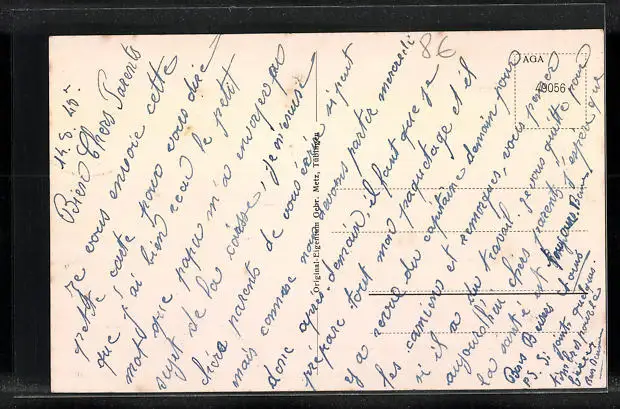 14.8.45-
Bien Chers Parents
Je vous envoie cette
petite carte pour vous dire
que j'ai bien reçu le petit
mot que papa m'a envoyé au
sujet de la caisse, je m'excuse
chère parents de vous
mais comme nous devons partir mercredi
donc après-demain, il faut que je
prépare tout mon paquetage et il
y a revue du capitaine demain pour
les camions et remorques, vous pensez
si il a du travail, je vous quitte pour
aujourd'hui chers parents j'espère que
la santé est toujours bien
Bons Baisers à tous
P.S.
86
AGA
49056
Original-Eigentum Gebr. Metz, Tübingen